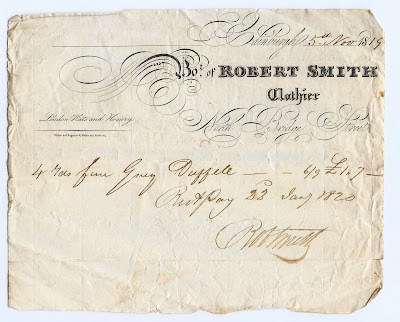 Edinburgh 5th Nov 1819
Bot. of ROBERT SMITH
Clothier
London Hats and Hosiery
North Bridge Street
4 Yds fine Grey Duffele — — 6/9 £1 „ 7 —
Rect Pay 22 Jany 1820
Robt Smith